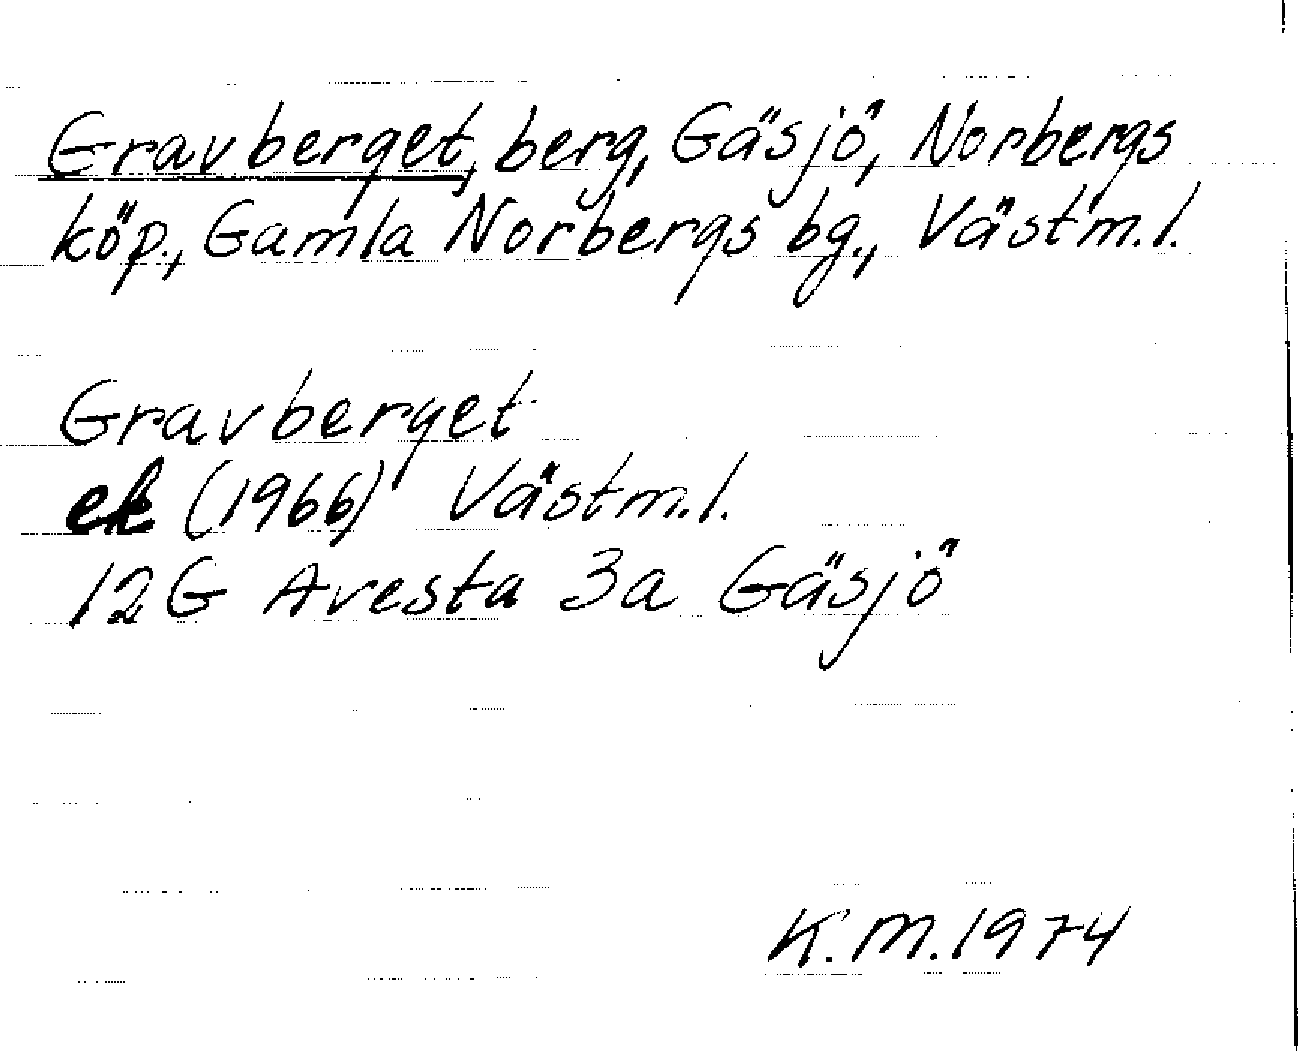 Gravberget, berg, Gäsjö, Norbergs
köp., Gamla Norbergs bg., Västm.l.
Gravberget
ek (1966) Västm.l.
12G Avesta 3a Gäsjö
K.M.1974